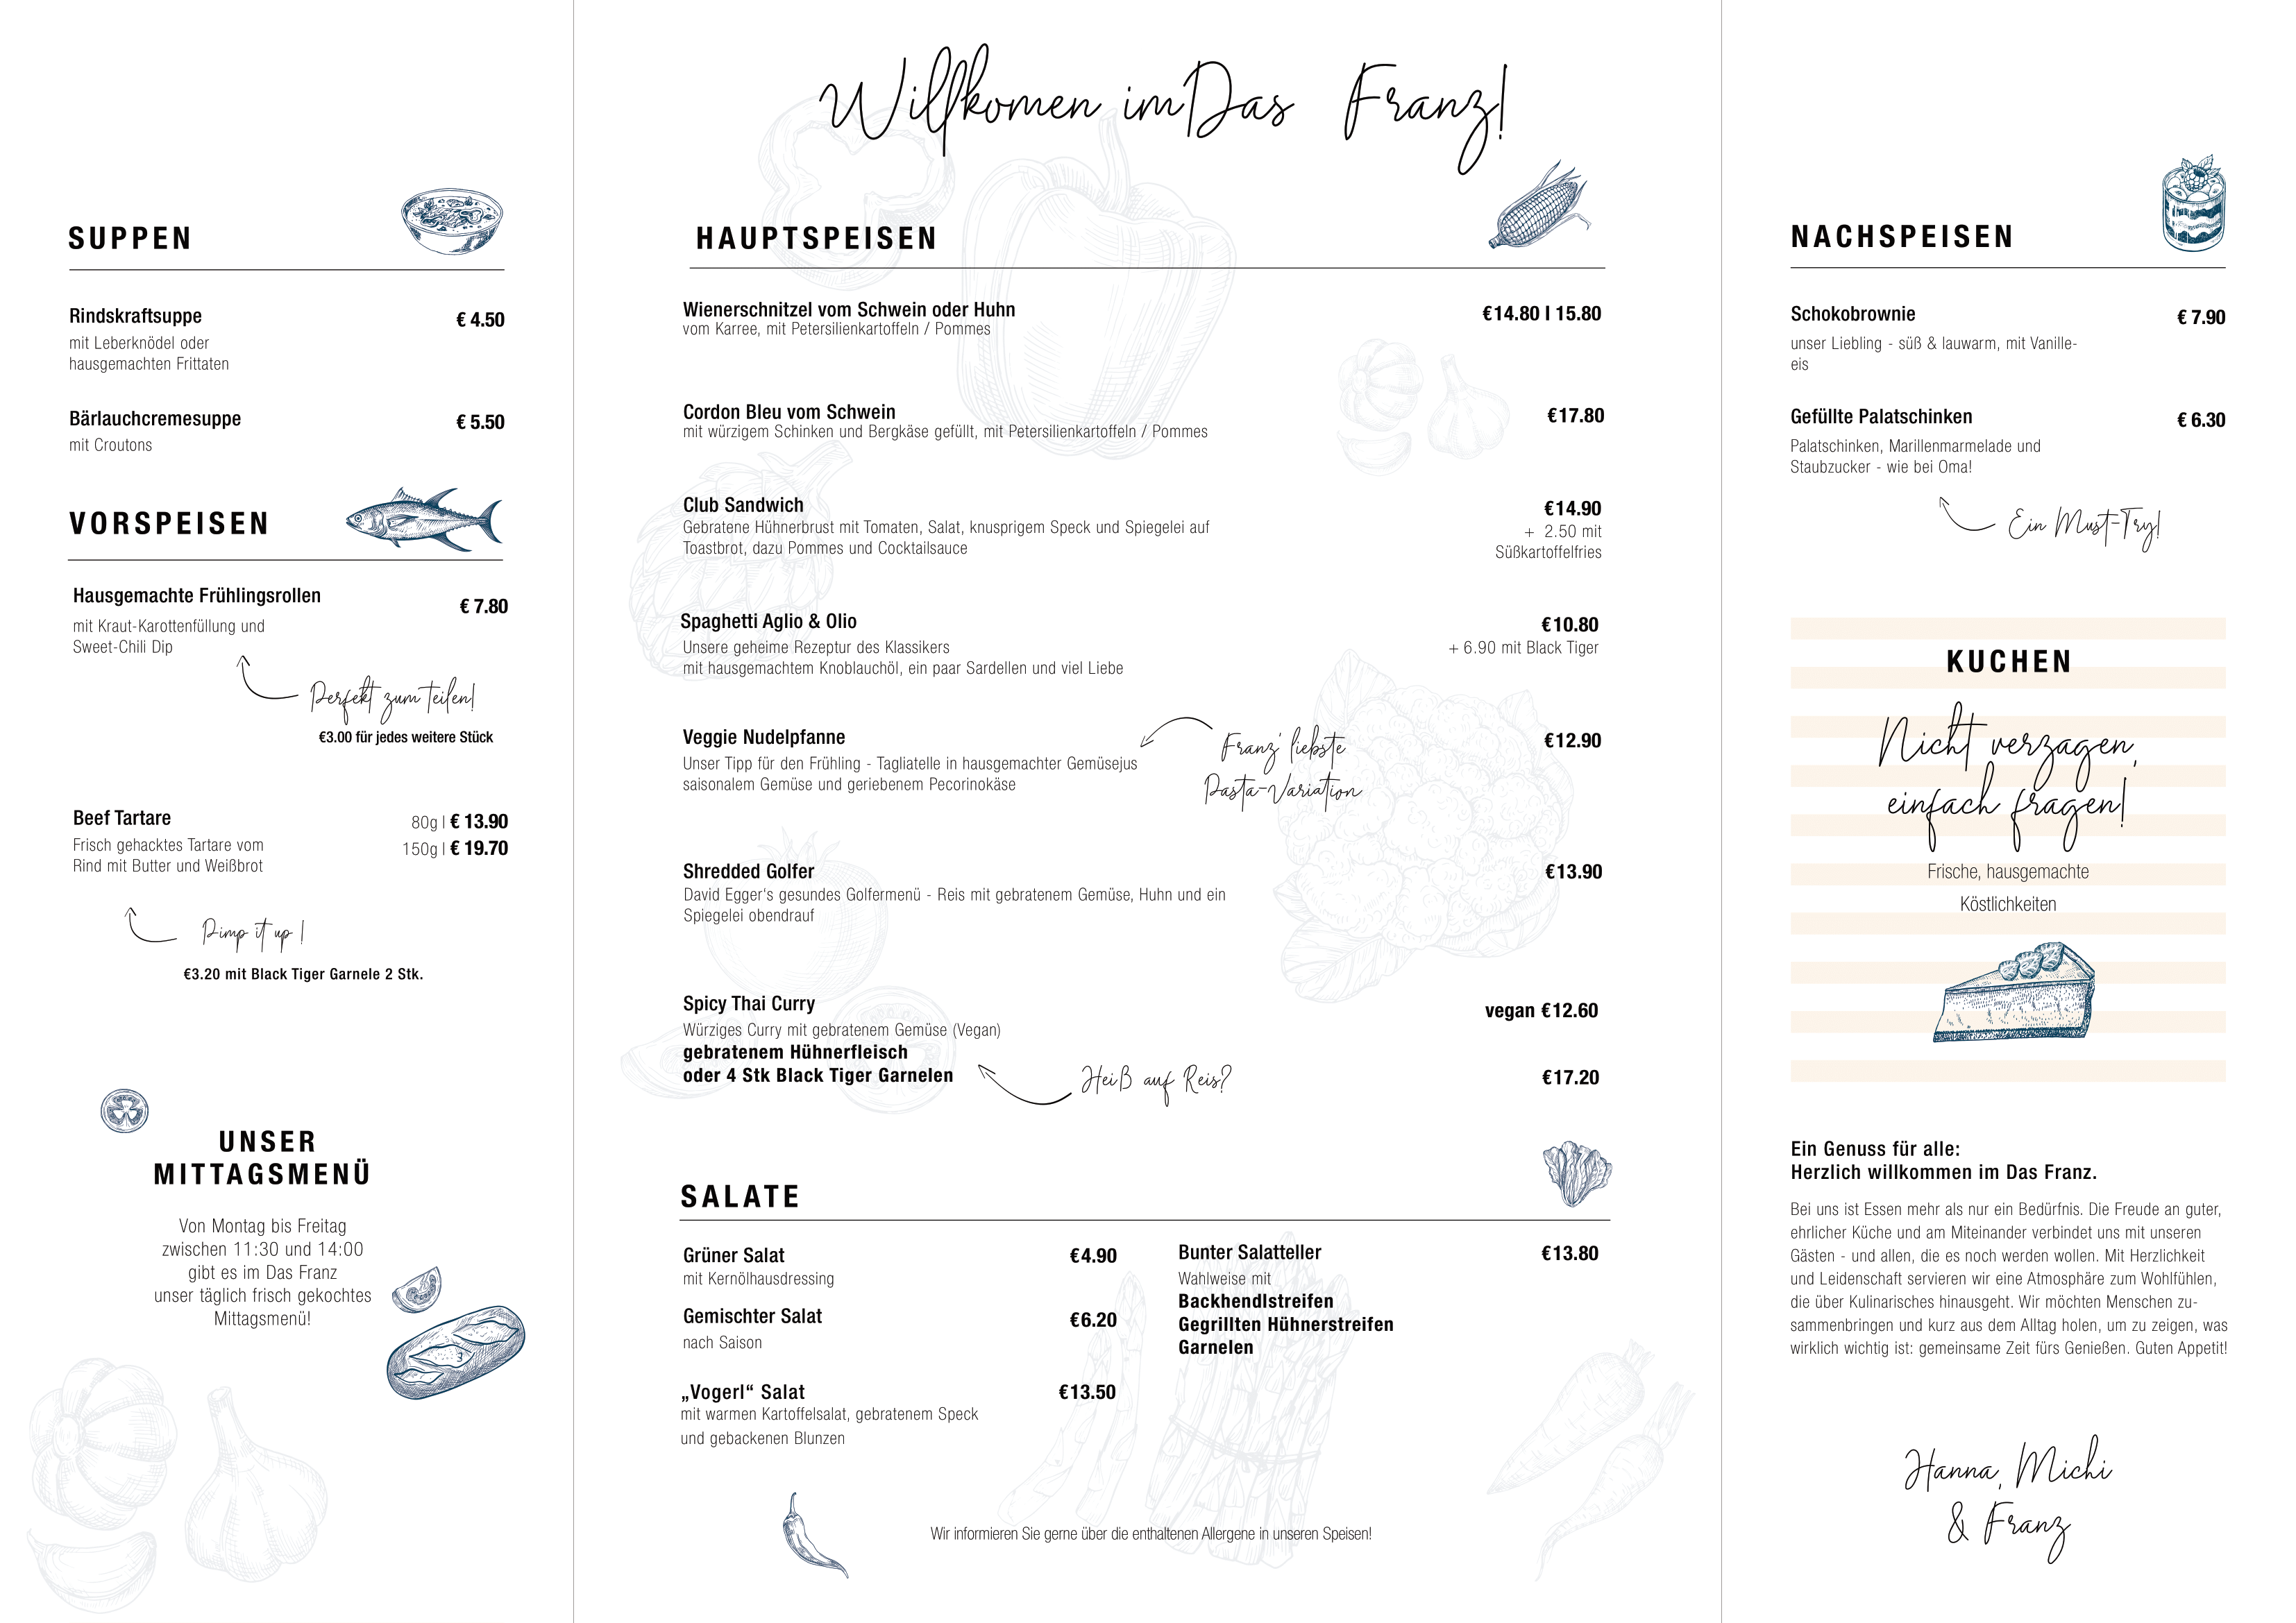 Willkomen im Das Franz!
SUPPEN
Rindskraftsuppe
€ 4.50
mit Leberknödel oder
hausgemachten Frittaten
Bärlauchcremesuppe
€ 5.50
mit Croutons
VORSPEISEN
Hausgemachte Frühlingsrollen
€ 7.80
mit Kraut-Karottenfüllung und
Sweet-Chili Dip
Perfekt zum teilen!
€3.00 für jedes weitere Stück
Beef Tartare
80g I € 13.90
Frisch gehacktes Tartare vom
150g I € 19.70
Rind mit Butter und Weißbrot
Pimp it up !
€3.20 mit Black Tiger Garnele 2 Stk.
UNSER
MITTAGSMENÜ
Von Montag bis Freitag
zwischen 11:30 und 14:00
gibt es im Das Franz
unser täglich frisch gekochtes
Mittagsmenü!
HAUPTSPEISEN
Wienerschnitzel vom Schwein oder Huhn
€14.80 I 15.80
vom Karree, mit Petersilienkartoffeln / Pommes
Cordon Bleu vom Schwein
€17.80
mit würzigem Schinken und Bergkäse gefüllt, mit Petersilienkartoffeln / Pommes
Club Sandwich
€14.90
Gebratene Hühnerbrust mit Tomaten, Salat, knusprigem Speck und Spiegelei auf
Toastbrot, dazu Pommes und Cocktailsauce
+ 2.50 mit
Süßkartoffelfries
Spaghetti Aglio & Olio
€10.80
Unsere geheime Rezeptur des Klassikers
+ 6.90 mit Black Tiger
mit hausgemachtem Knoblauchöl, ein paar Sardellen und viel Liebe
Veggie Nudelpfanne
€12.90
Unser Tipp für den Frühling - Tagliatelle in hausgemachter Gemüsejus
saisonalem Gemüse und geriebenem Pecorinokäse
Franz' liebste
Pasta-Variation
Shredded Golfer
€13.90
David Egger's gesundes Golfermenü - Reis mit gebratenem Gemüse, Huhn und ein
Spiegelei obendrauf
Spicy Thai Curry
vegan €12.60
Würziges Curry mit gebratenem Gemüse (Vegan)
gebratenem Hühnerfleisch
oder 4 Stk Black Tiger Garnelen
€17.20
Heiß auf Reis?
SALATE
Grüner Salat
€4.90
mit Kernölhausdressing
Gemischter Salat
€6.20
nach Saison
„Vogerl“ Salat
€13.50
mit warmen Kartoffelsalat, gebratenem Speck
und gebackenen Blunzen
Bunter Salatteller
€13.80
Wahlweise mit
Backhendlstreifen
Gegrillten Hühnerstreifen
Garnelen
Wir informieren Sie gerne über die enthaltenen Allergene in unseren Speisen!
NACHSPEISEN
Schokobrownie
€ 7.90
unser Liebling - süß & lauwarm, mit Vanille-
eis
Gefüllte Palatschinken
€ 6.30
Palatschinken, Marillenmarmelade und
Staubzucker - wie bei Oma!
Ein Must-Try!
KUCHEN
Nicht verzagen,
einfach fragen!
Frische, hausgemachte
Köstlichkeiten
Ein Genuss für alle:
Herzlich willkommen im Das Franz.
Bei uns ist Essen mehr als nur ein Bedürfnis. Die Freude an guter,
ehrlicher Küche und am Miteinander verbindet uns mit unseren
Gästen - und allen, die es noch werden wollen. Mit Herzlichkeit
und Leidenschaft servieren wir eine Atmosphäre zum Wohlfühlen,
die über Kulinarisches hinausgeht. Wir möchten Menschen zu-
sammenbringen und kurz aus dem Alltag holen, um zu zeigen, was
wirklich wichtig ist: gemeinsame Zeit fürs Genießen. Guten Appetit!
Hanna, Michi
& Franz